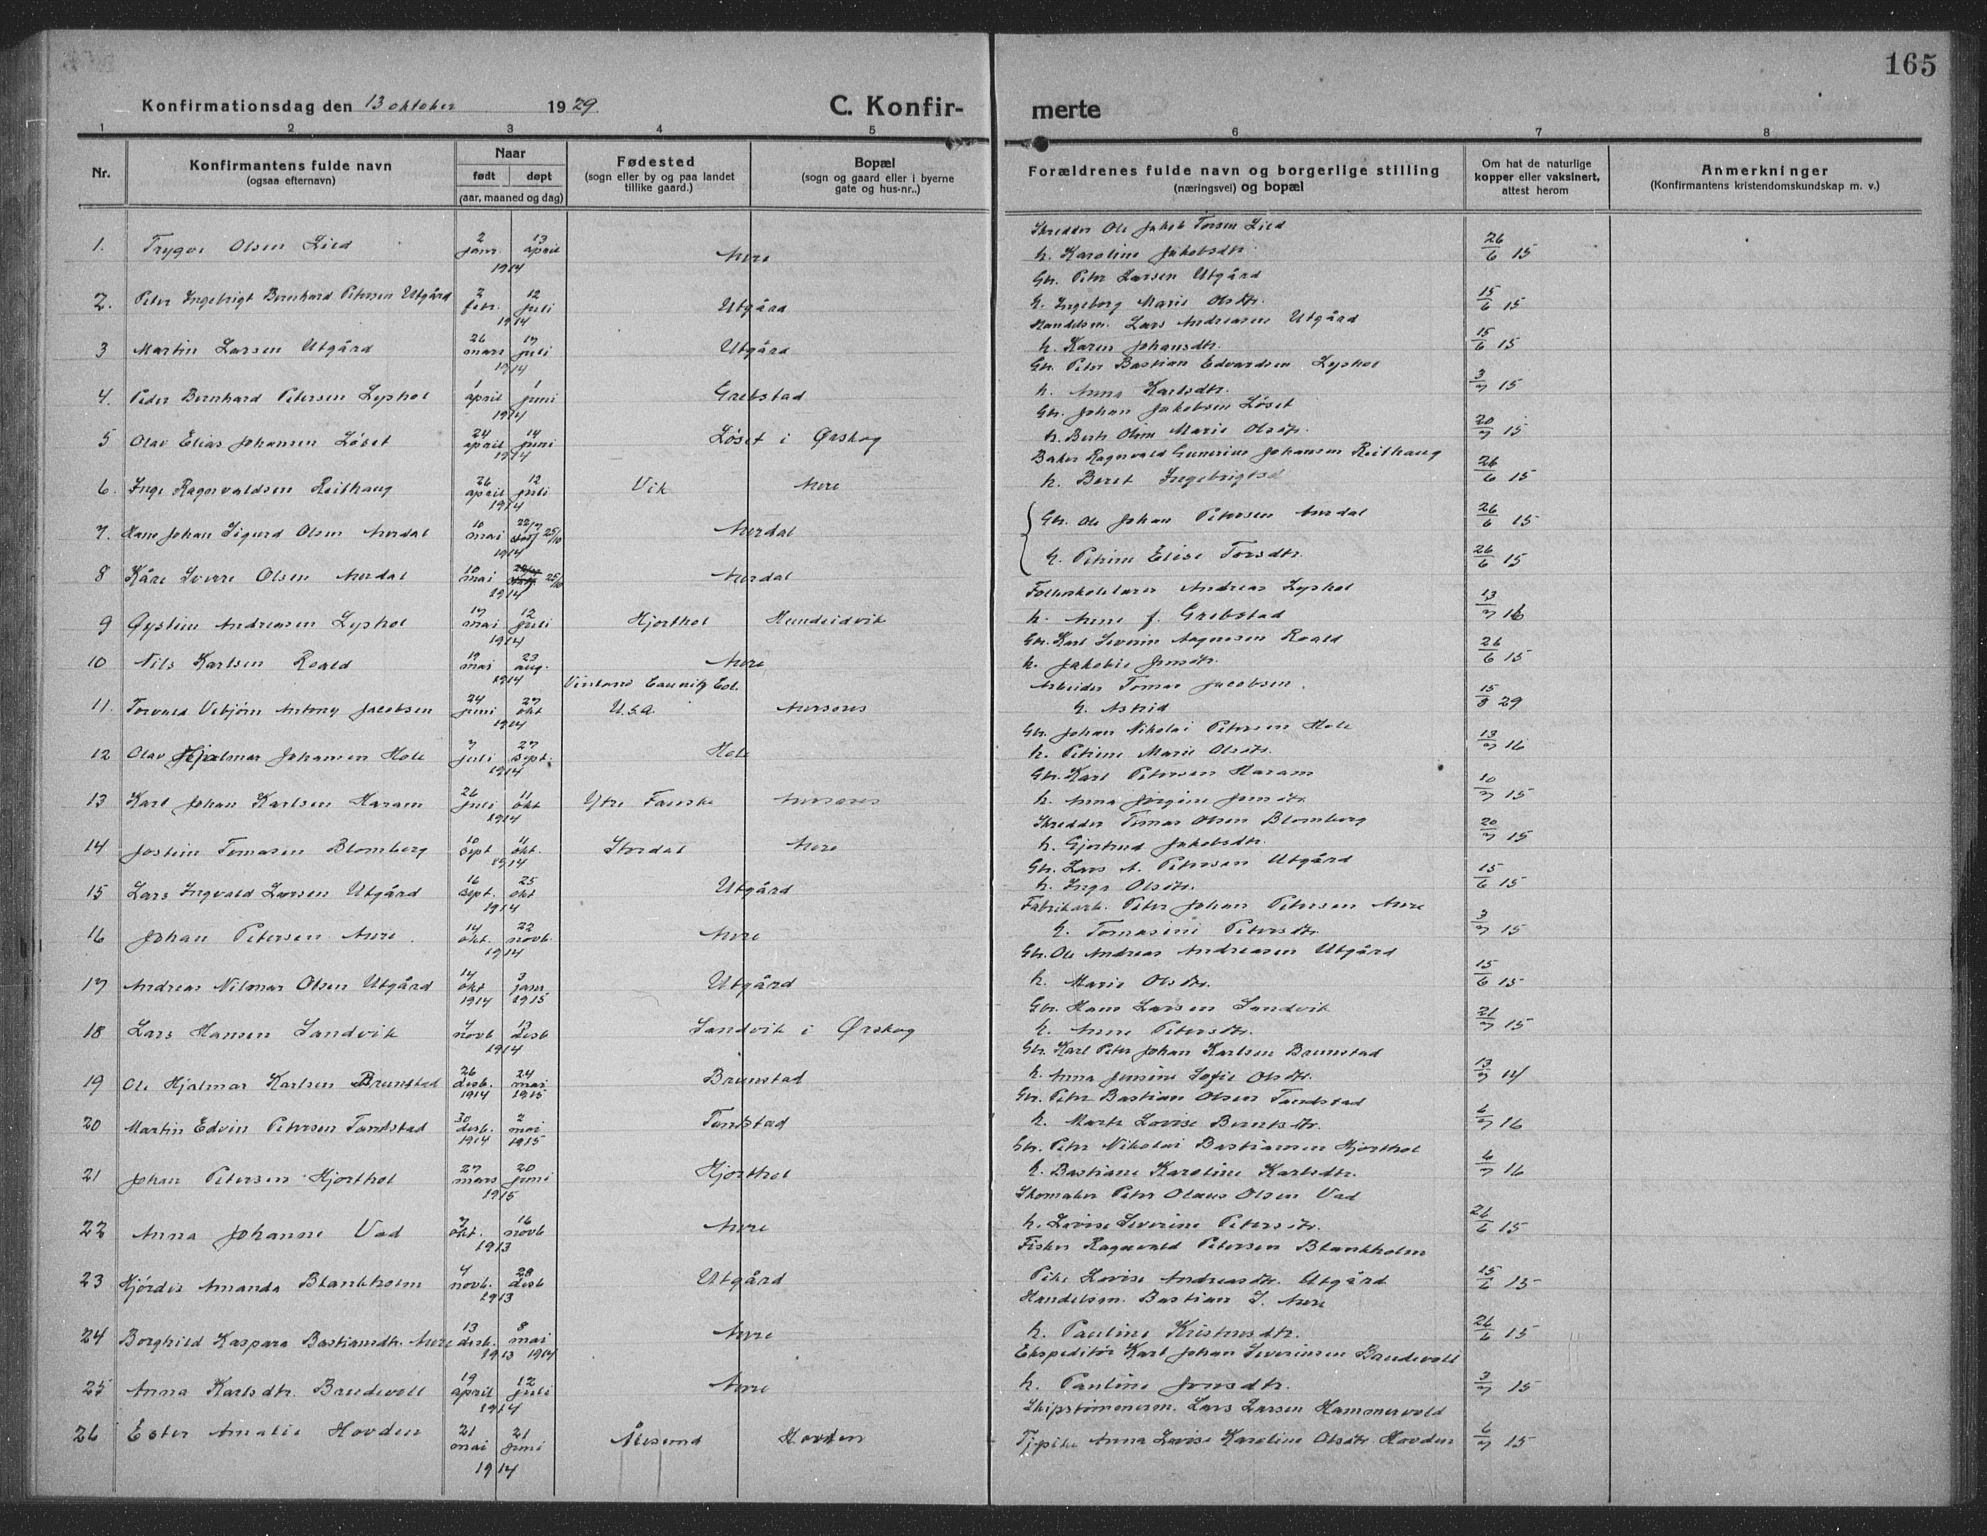 165
Konfirmationsdag den 13 oktober 1929. C. Konfir- merte
1 2 3 4 5 6 7 8
Nr. Konfirmantens fulde navn (ogsaa efternavn) Naar født døpt (aar, maaned og dag) Fødested (sogn eller by og paa landet tillike gaard.) Bopæl (sogn og gaard eller i byerne gate og hus-nr..) Forældrenes fulde navn og borgerlige stilling (næringsvei) og bopæl Om hat de naturlige kopper eller vaksinert, attest herom Anmerkninger (Konfirmantens kristendomskundskap m. v.)
1. Trygve Olsen Lied 2 janr. 13 april 1914 Aure Skredder Ole Jakob Torsen Lied h. Karoline Jakobsdtr. 26/6 15
2. Peter Ingebrigt Bernhard Petersen Utgård 2 febr. 12 juli 1914 Utgård Gbr. Peter Larsen Utgård h. Ingeborg Marie Olsdtr. 15/6 15
3 Martin Larsen Utgård 26 mars 17 juli 1914 Utgård Handelsm. Lars Andreasen Utgård h. Karen Johansdtr. 15/6 15
4. Peder Bernhard Petersen Lyshol 1 april 1 juni 1914 Grebstad Gbr. Peter Bastian Edvardsen Lyshol h. Anna Karlsdtr. 3/7 15
5 Olav Elias Johansen Løset 24 april 14 juni 1914 Løset i Ørskog Gbr. Johan Jakobsen Løset h. Berte Oline Marie Olsdtr. 20/7 15
6. Inge Ragnvaldsen Reithaug 26 april 12 juli 1914 Vik Aure Baker Ragnvald Gunerius Johansen Reithaug h. Beret Ingebrigtsd 26/6 15
7. Hans Johan Sigurd Olsen Aurdal 10 mai 22/7 25/10 1914 Aurdal Gbr. Ole Johan Petersen Aurdal 26/6 15
8 Kåre Sverre Olsen Aurdal 10 mai 25/10 1914 Aurdal h. Petrine Elise Torsdtr. 26/6 15
9 Øystein Andreasen Lyshol 17 mai 12 juli 1914 Hjorthol Hundeidvik Folkeskolelærer Andreas Lyshol h. Anne f. Grebstad 13/7 16
10 Nils Karlsen Roald 19 mai 23 aug. 1914 Aure Gbr. Karl Severin Aagesen Roald h. Jakobie Jensdtr. 26/6 15
11. Torvald Vebjørn Antony Jacobsen 24 juni 27 okt 1914 U.S.A. Aursnes Arbeider Tomas Jacobsen. h. Astrid 15/8 29
12 Olav Hjalmar Johansen Hole 7 juli 27 sept. 1914 Hole Gbr. Johan Nikolai Petersen Hole h. Petrine Marie Olsdtr. 13/7 16
13 Karl Johan Karlsen Haram 26 juli 11 okt 1914 Ytre Fauske Aursnes Gbr. Karl Petersen Haram h. Anna Jørgine Jensdtr. 10/7 15
14 Jostein Tomasen Blomberg 10 sept 11 okt. 1914 Stordal Aure Skredder Tomas Olsen Blomberg h. Gjertrud Jakobsdtr. 20/7 15
15 Lars Ingvald Larsen Utgård 16 sept. 25 okt 1914 Utgård Gbr. Lars A. Petersen Utgård h. Inga Olsdtr. 15/6 15
16 Johan Petersen Aure. 14 okt. 22 novb. 1914 Aure Fabrikarb. Peter Johan Petersen Aure h. Tomasine Petersdtr. 3/7 15
17 Andreas Nilmar Olsen Utgård 14 okt 1914 3 janr. 1915 Utgård Gbr. Ole Andreas Andreasen Utgård h. Marie Olsdtr. 15/6 15
18 Lars Hansen Sandvik 4 novb 13 desb 1914 Sandvik i Ørskog Gbr. Hans Larsen Sandvik h. Anne Petersdtr. 21/7 15
19 Ole Hjalmar Karlsen Brunstad 26 desb. 1914 24 mai 1915 Brunstad Gbr. Karl Peter Johan Karlsen Brunstad h. Anna Jensine Sofie Olsdtr. 13/7 14
20 Martin Edvin Petersen Tandstad 30 desb. 1914 2 mai 1915 Tandstad Gbr. Peter Bastian Olsen Tandstad h. Marte Lovise Berntsdtr. 6/7 16
21 Johan Petersen Hjorthol 27 mars 20 juni 1915 Hjorthol Gbr. Peter Nikolai Bastiansen Hjorthol h. Bastiane Karoline Karlsdtr. 6/7 16
22 Anna Johanne Vad 7 okt. 16 novb 1913 Aure Skomaker Peter Olaus Olsen Vad h. Lovise Severine Petersdtr. 26/6 15
23 Hjørdis Amanda Blankholm 4 novb. 28 desb 1913 Utgård Fisker Ragnvald Petersen Blankholm Pike Lovise Andreasdtr. Utgård 15/6 15
24 Borghild Kaspara Bastiansdtr. Aure 13 desb. 1913 8 mai 1914 Aure Handelsm. Bastian S. Aure h. Pauline Kristensdtr. 26/6 15
25 Anna Karlsdtr. Brudevoll 19 april 12 juli 1914 Aure Ekspeditør Karl Johan Severinsen Brudevoll h. Pauline Jensdtr. 3/7 15
26 Ester Amalie Hovden 21 mai 21 juni 1914 Ålesund Hovden Skipstømmerm. Lars Larsen Hammervold Tjpike Anna Lovise Karoline Olsdtr Hovden 6/7 15